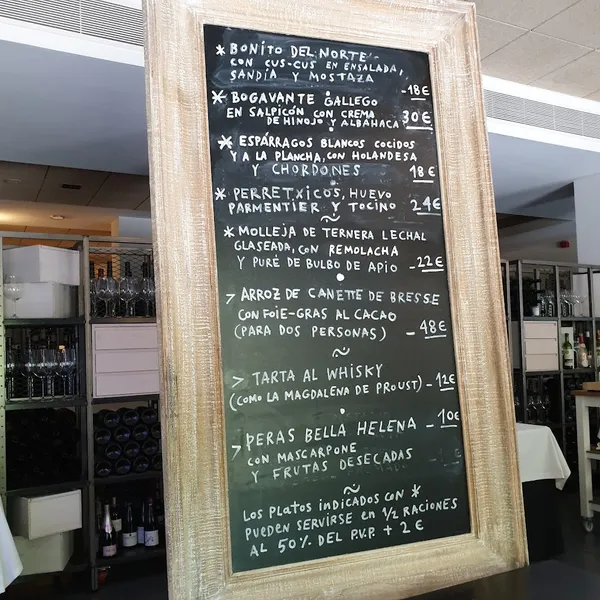 * BONITO DEL NORTE
CON CUS-CUS EN ENSALADA,
SANDÍA Y MOSTAZA -18€
* BOGAVANTE GALLEGO
EN SALPICÓN CON CREMA
DE HINOJO Y ALBAHACA 30€
* ESPÁRRAGOS BLANCOS COCIDOS
Y A LA PLANCHA, CON HOLANDESA
Y CHORDONES 18€
* PERRETXICOS, HUEVO
PARMENTIER Y TOCINO 24€
~
* MOLLEJA DE TERNERA LECHAL
GLASEADA, CON REMOLACHA
Y PURÉ DE BULBO DE APIO -22€
> ARROZ DE CANETTE DE BRESSE
CON FOIE-GRAS AL CACAO
(PARA DOS PERSONAS) - 48€
~
> TARTA AL WHISKY
(COMO LA MAGDALENA DE PROUST) -12€
> PERAS BELLA HELENA -10€
CON MASCARPONE
Y FRUTAS DESECADAS
~
LOS PLATOS INDICADOS CON *
PUEDEN SERVIRSE EN 1/2 RACIONES
AL 50% DEL P.V.P. + 2€